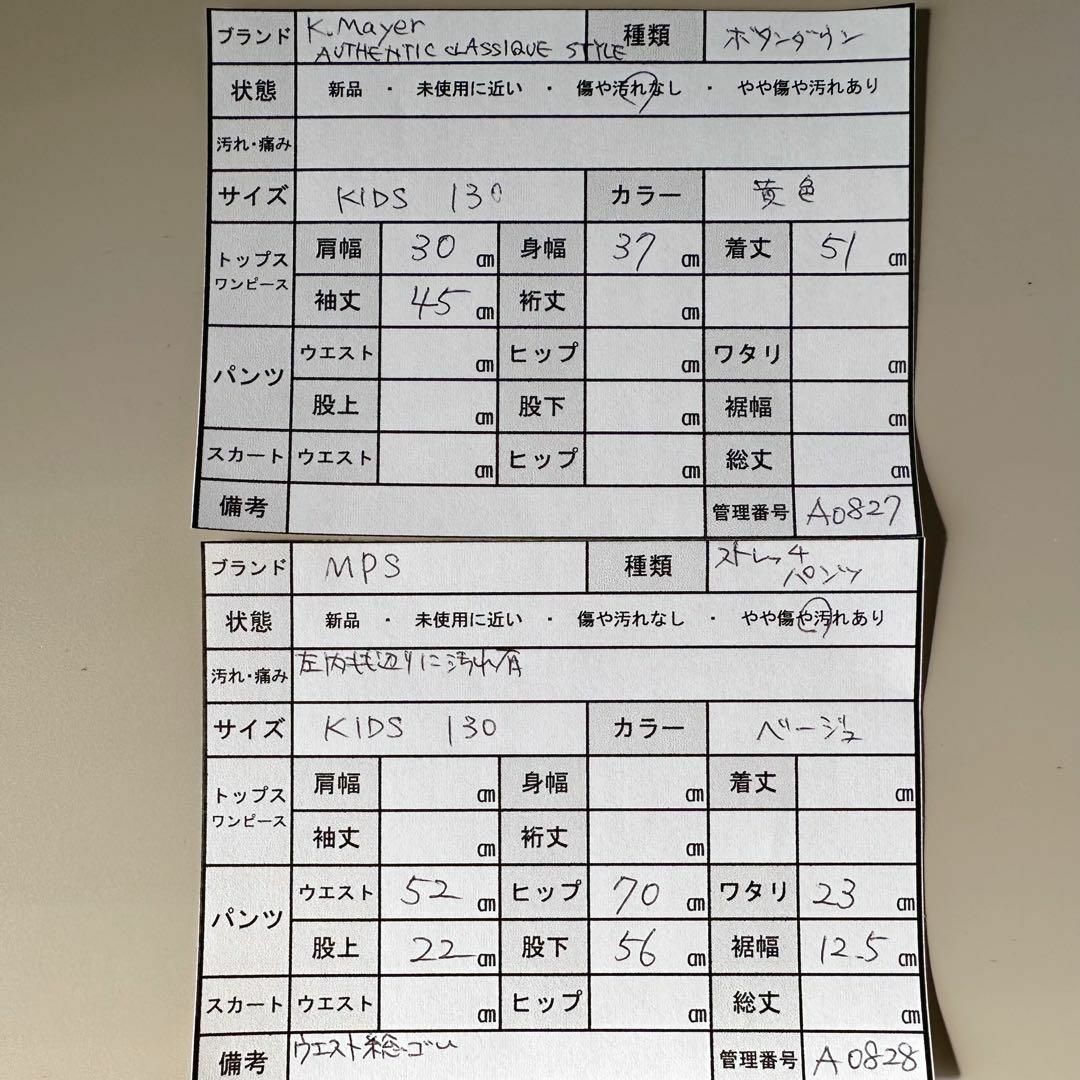 ブランド K.Mayer AUTHENTIC CLASSIQUE STYLE 種類 ボタンダウン
状態 新品 ・ 未使用に近い ・ 傷や汚れなし ・ やや傷や汚れあり
汚れ・痛み
サイズ KIDS 130 カラー 黄色
トップス ワンピース 肩幅 30 cm 身幅 37 cm 着丈 51 cm
袖丈 45 cm 裄丈 cm
パンツ ウエスト cm ヒップ cm ワタリ cm
股上 cm 股下 cm 裾幅 cm
スカート ウエスト cm ヒップ cm 総丈 cm
備考 管理番号 A0827
ブランド MPS 種類 ストレッチパンツ
状態 新品 ・ 未使用に近い ・ 傷や汚れなし ・ やや傷や汚れあり
汚れ・痛み 左内もも辺りに汚れ有
サイズ KIDS 130 カラー ベージュ
トップス ワンピース 肩幅 cm 身幅 cm 着丈 cm
袖丈 cm 裄丈 cm
パンツ ウエスト 52 cm ヒップ 70 cm ワタリ 23 cm
股上 22 cm 股下 56 cm 裾幅 12.5 cm
スカート ウエスト cm ヒップ cm 総丈 cm
備考 ウエスト総ゴム 管理番号 A0828